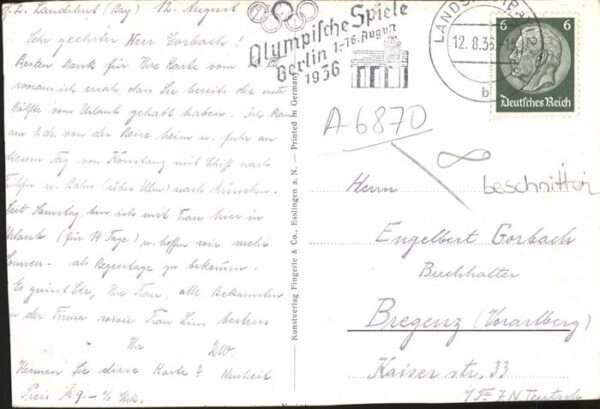 z. Zt. Landshut (Bay) 12. August
Sehr geehrter Herr Gorbach!
Besten Dank für Ihre Karte vom
woraus ich ersah dass Sie bereits die
Hälfte vom Urlaub gehabt haben. Ich kam
am von der Reise heim u. fuhr an
diesem Tag von Konstanz mit Schiff nach
u. Bahn (über Ulm) nach München.
Seit Samstag bin ich mit Frau hier in
Urlaub (für 14 Tage) u. hoffen wir mehr
Sonnen- als Regentage zu bekommen.
Es grüsst Sie, Ihre Frau, alle Bekannten
in der Firma sowie Frau bestens
Ihr
Kennen Sie diese Karte? Neuheit
Preis
Kunstverlag Fingerle & Co., Esslingen a. N. — Printed in Germany
Olympische Spiele
Berlin 1-16. August
1936
LANDSHUT (BAY)
12.8.36
b
6 6
Deutsches Reich
A-6870
beschnitten
Herrn
Engelbert Gorbach
Buchhalter
Bregenz (Vorarlberg)
Kaiser str. 33